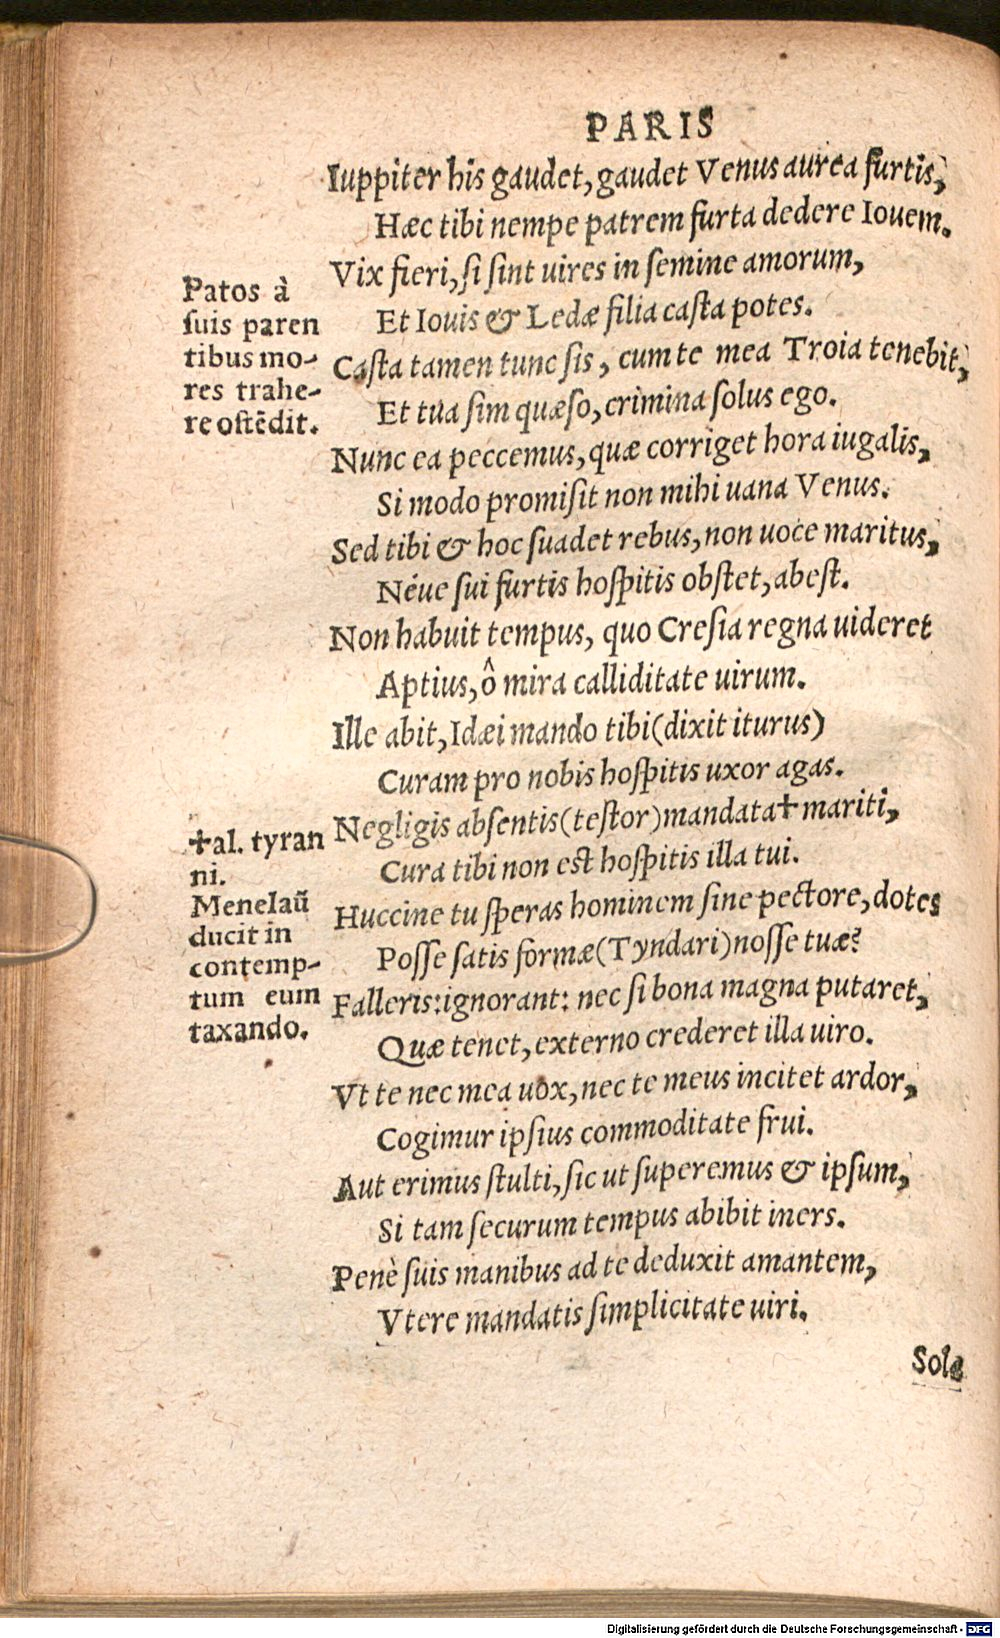 PARIS
Iuppiter his gaudet, gaudet Venus aurea furtis,
Hæc tibi nempe patrem furta dedere Iouem.
Vix fieri, si sint uires in semine amorum,
Et Iouis & Ledæ filia casta potes.
Casta tamen tunc sis, cum te mea Troia tenebit,
Et tua sim quæso, crimina solus ego.
Nunc ea peccemus, quæ corriget hora iugalis,
Si modo promisit non mihi uana Venus.
Sed tibi & hoc suadet rebus, non uoce maritus,
Néue sui furtis hospitis obstet, abest.
Non habuit tempus, quo Cresia regna uideret
Aptius, ô mira calliditate uirum.
Ille abit, Idæi mando tibi (dixit iturus)
Curam pro nobis hospitis uxor agas.
Negligis absentis (testor) mandata † mariti,
Cura tibi non est hospitis illa tui.
Huccine tu speras hominem sine pectore, dotes
Posse satis formæ (Tyndari) nosse tuæ?
Falleris: ignorant: nec si bona magna putaret,
Quæ tenet, externo crederet illa uiro.
Vt te nec mea uox, nec te meus incitet ardor,
Cogimur ipsius commoditate frui.
Aut erimus stulti, sic ut superemus & ipsum,
Si tam securum tempus abibit iners.
Penè suis manibus ad te deduxit amantem,
Vtere mandatis simplicitate uiri.
Sola
Patos à
suis paren
tibus mo-
res trahe-
re ostēdit.
†al. tyran
ni.
Menelaū
ducit in
contemp-
tum eum
taxando.
Digitalisierung gefördert durch die Deutsche Forschungsgemeinschaft - DFG